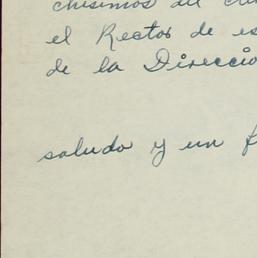 chisimos del
el Rector de es
de la Direccio
saludo y un f